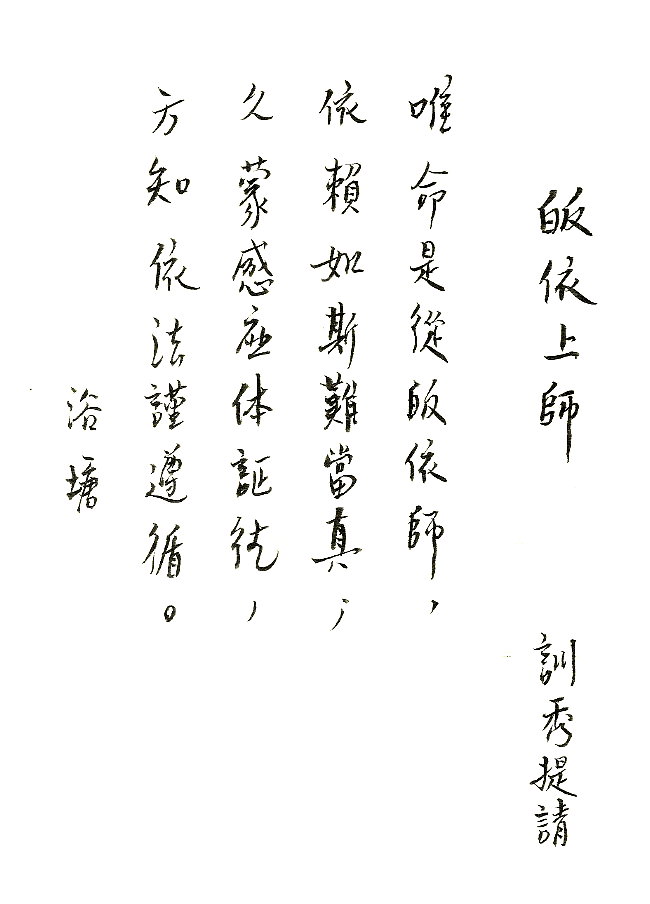 皈依上師
訓秀提請
唯命是從皈依師，
依賴如斯難當真；
久蒙感应体証後，
方知依法謹遵循。
浴塘